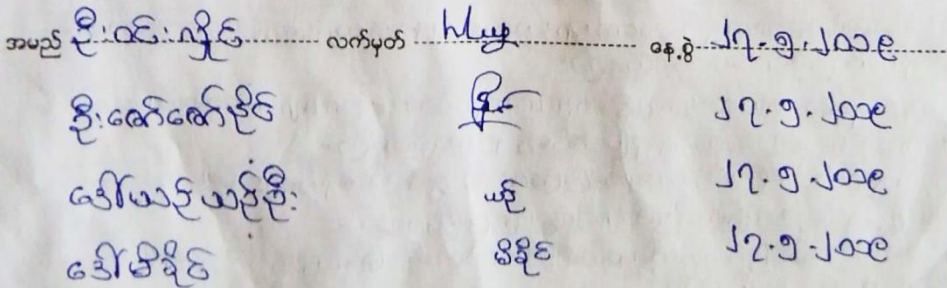 အမည် ဦးဝင်းလှိုင် လက်မှတ် နေ့စွဲ ၂၇.၅.၂၀၁၉
ဦးဇော်ဇော်နိုင် ၂၇.၅.၂၀၁၉
ဒေါ်ယဉ်ယဉ်ဦး ယဉ် ၂၇.၅.၂၀၁၉
ဒေါ်မိခိုင် မိခိုင် ၂၇.၅.၂၀၁၉